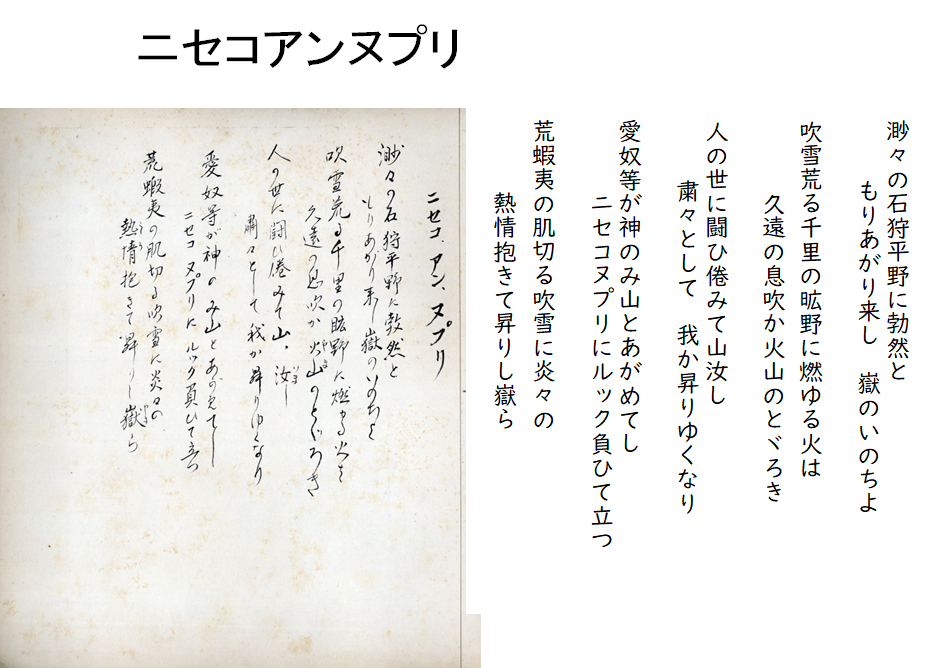 ニセコアンヌプリ
渺々の石狩平野に勃然と
もりあがり来し 嶽のいのちよ
吹雪荒る千里の昿野に燃ゆる火は
久遠の息吹か火山のとゞろき
人の世に闘ひ倦みて山汝し
粛々として 我か昇りゆくなり
愛奴等が神のみ山とあがめてし
ニセコヌプリにルック負ひて立つ
荒蝦夷の肌切る吹雪に炎々の
熱情抱きて昇りし嶽ら
ニセコ、アン、ヌプリ
渺々の石狩平野に勃然と
もりあがり来し嶽のいのちよ
吹雪荒る千里の昿野に燃ゆる火は
久遠の息吹か火山のとゞろき
人の世に闘ひ倦みて山、汝し
粛々として我か昇りゆくなり
愛奴等が神のみ山とあがめてし
ニセコヌプリにルック負ひて立つ
荒蝦夷の肌切る吹雪に炎々の
熱情抱きて昇りし嶽ら